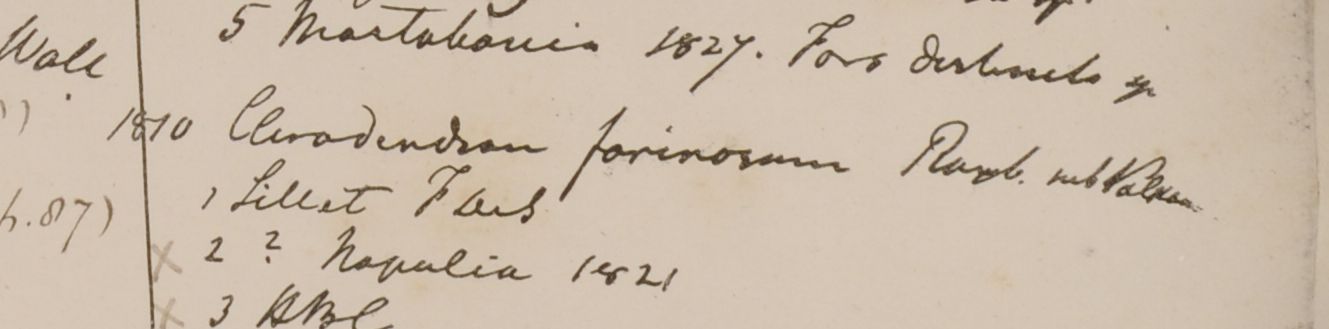 Wall
5 Martabania 1827. Fors distincta sp
1810 Clerodendron farinosum Roxb. sub Volkam
1 Sillet F
h.87)
2 ? Napalia 1821
3 HBC